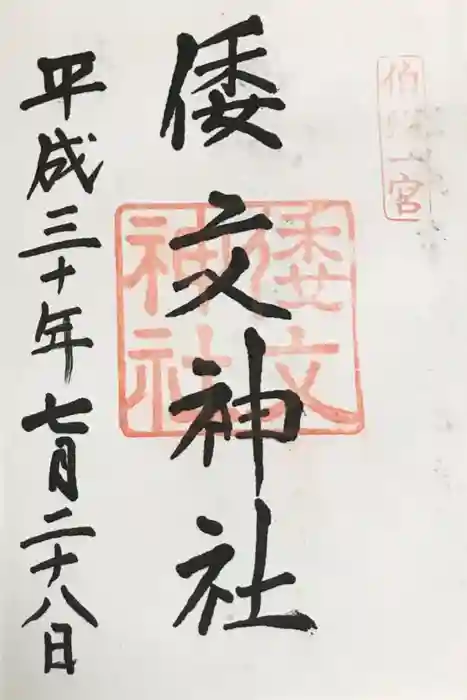 伯耆一宮
倭文神社
倭文神社
平成三十年七月二十八日